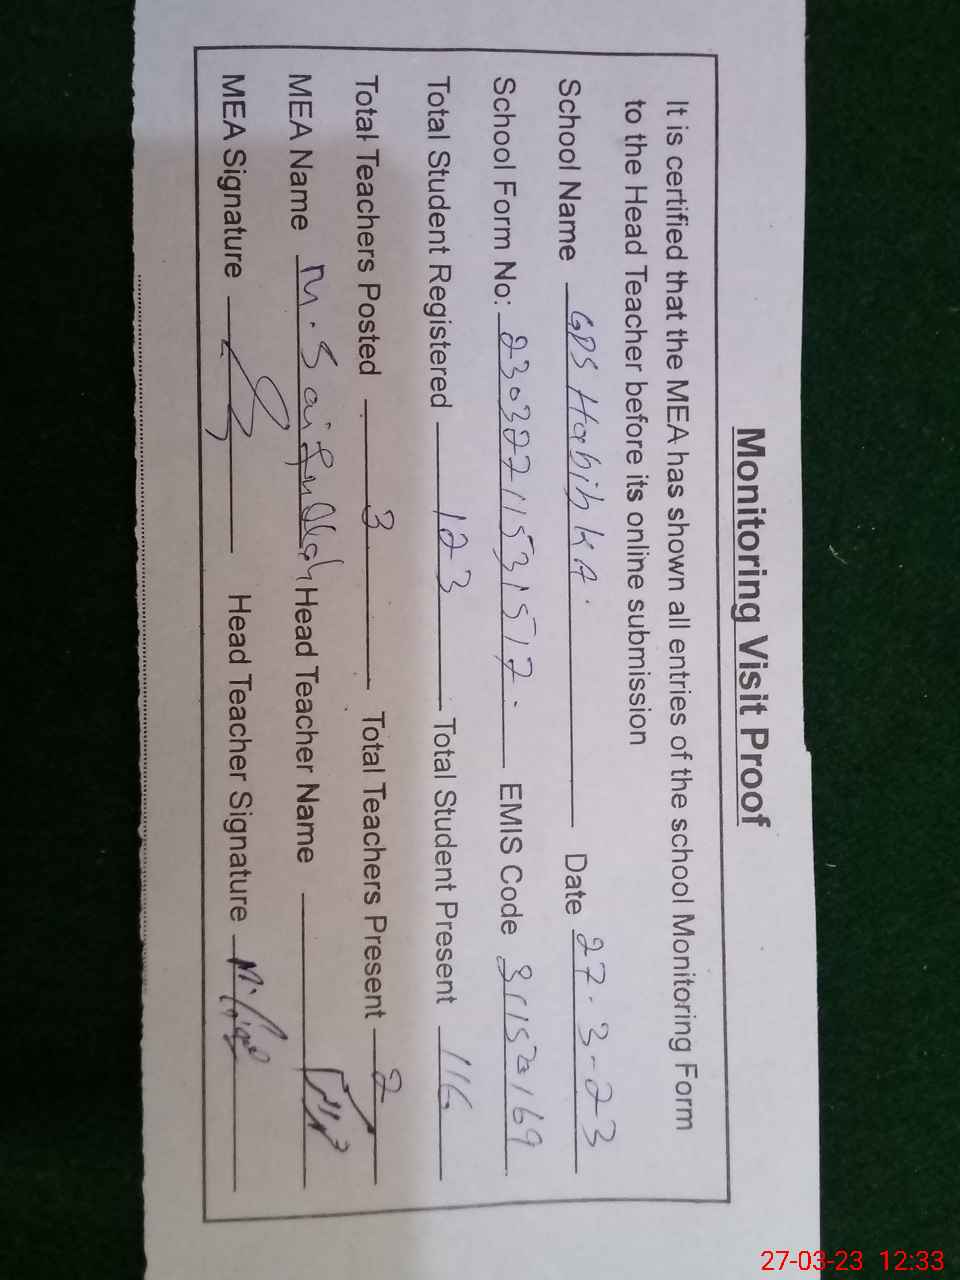 Monitoring Visit Proof
It is certified that the MEA has shown all entries of the school Monitoring Form
to the Head Teacher before its online submission
School Name GPS Habib kA. Date 27.3-23
School Form No: 23032711531517. EMIS Code
Total Student Registered 123 Total Student Present 116
Total Teachers Posted 3 Total Teachers Present 2
MEA Name M. Saifullah Head Teacher Name
MEA Signature Head Teacher Signature
27-03-23 12:33